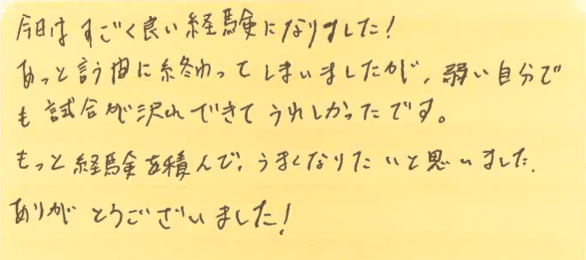 今日は すごく良い経験になりました!
あっと言う間に終わってしまいましたが、弱い自分で
も試合が沢山できてうれしかったです。
もっと経験を積んで、うまくなりたいと思いました.
ありがとうございました!